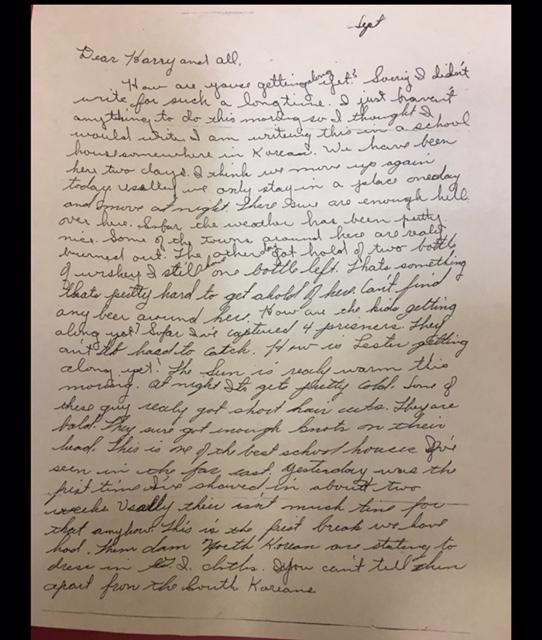 Sept
Dear Harry and all,
How are youse getting along yet? Sorry I didn't
write for such a long time. I just haven't
anything to do this morning so I thought I
would write. I am writing this in a school
house somewhere in Korean. We have been
here two days. I think we move up again
today usally we only stay in a place one day
and move at night. There sure are enough hills
over here. So far the weather has been pretty
nice. Some of the towns around here are realy
burned out. The other I got hold of two bottle
of wiskey I still have one bottle left. Thats something
thats pretty hard to get ahold of here. Can't find
any beer around here. How are the kids getting
along yet? So far I've captured 4 prisners. They
ain't to hard to catch. How is Lester getting
along yet? The Sun is realy warm this
morning. At night Its gets pretty cold. Some of
these guy realy got short hair cuts. They are
bald. They sure got enough knots on their
head. This is one of the best school houses I've
seen in the far east. Yesterday was the
first time I've shaved in about two
weeks Usally their isn't much time for
that anyhow. This is the first break we have
had. Them dam North Korean are stating to
dress in G.I. cloths. You can't tell them
apart from the South Koreans